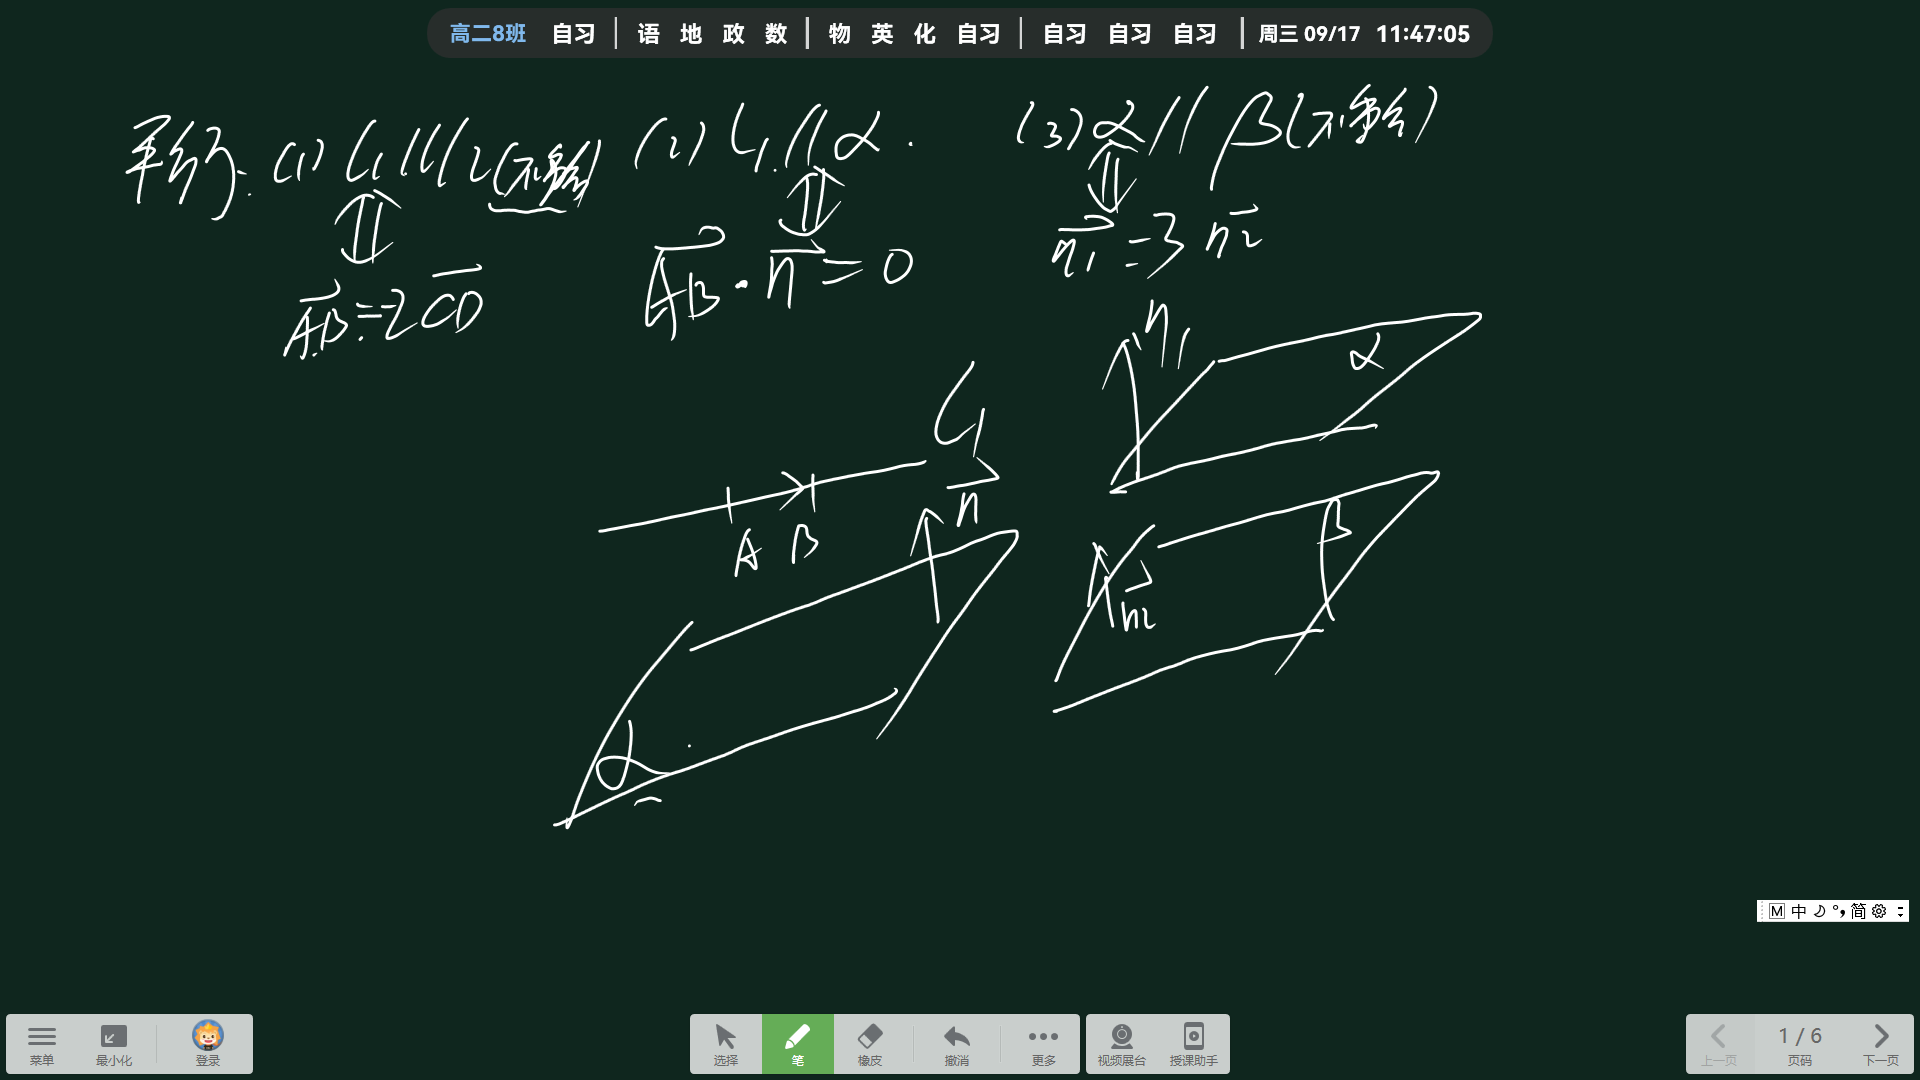 高二8班 自习 | 语 地 政 数 | 物 英 化 自习 | 自习 自习 自习 | 周三 09/17 11:47:05
平行: (1) L₁∥L₂(不重合) (2) L₁∥α. (3) α∥β(不重合)
AB=2CD
AB·n=0
n₁=3n₂
n₁
α
L₁
n
A B
β
n₂
α
M 中 简
菜单 最小化 登录 选择 笔 橡皮 撤消 更多 视频展台 授课助手 上一页 1 / 6 页码 下一页